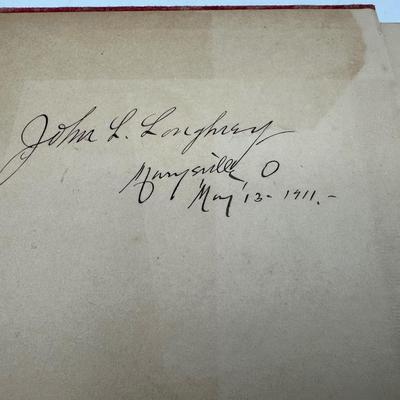 John L. Loughrey
Marysville O
May 13 - 1911.-